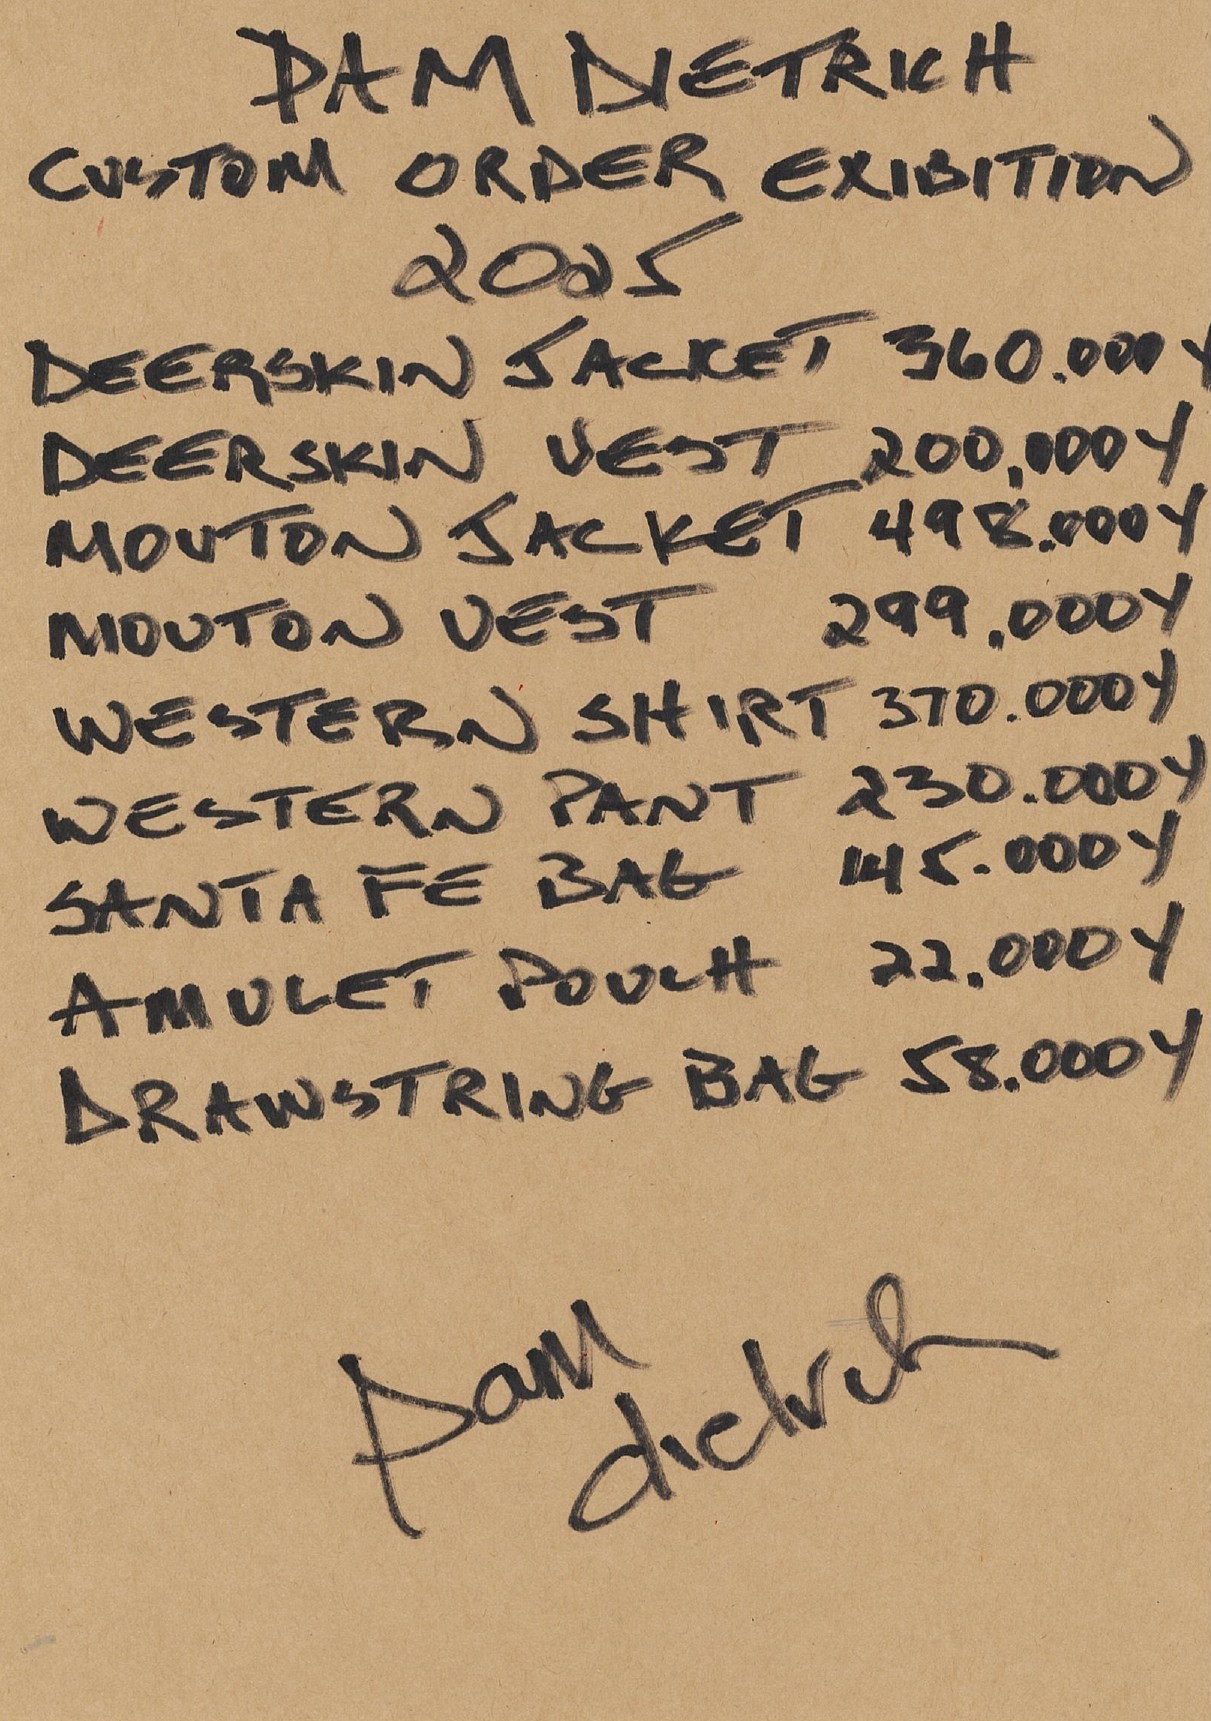 PAM DIETRICH
CUSTOM ORDER EXIBITION
2025
DEERSKIN JACKET 360.000Y
DEERSKIN VEST 200,000Y
MOUTON JACKET 498.000Y
MOUTON VEST 299.000Y
WESTERN SHIRT 370.000Y
WESTERN PANT 230.000Y
SANTA FE BAG 145.000Y
AMULET POUCH 22.000Y
DRAWSTRING BAG 58.000Y
Pam
dietrich